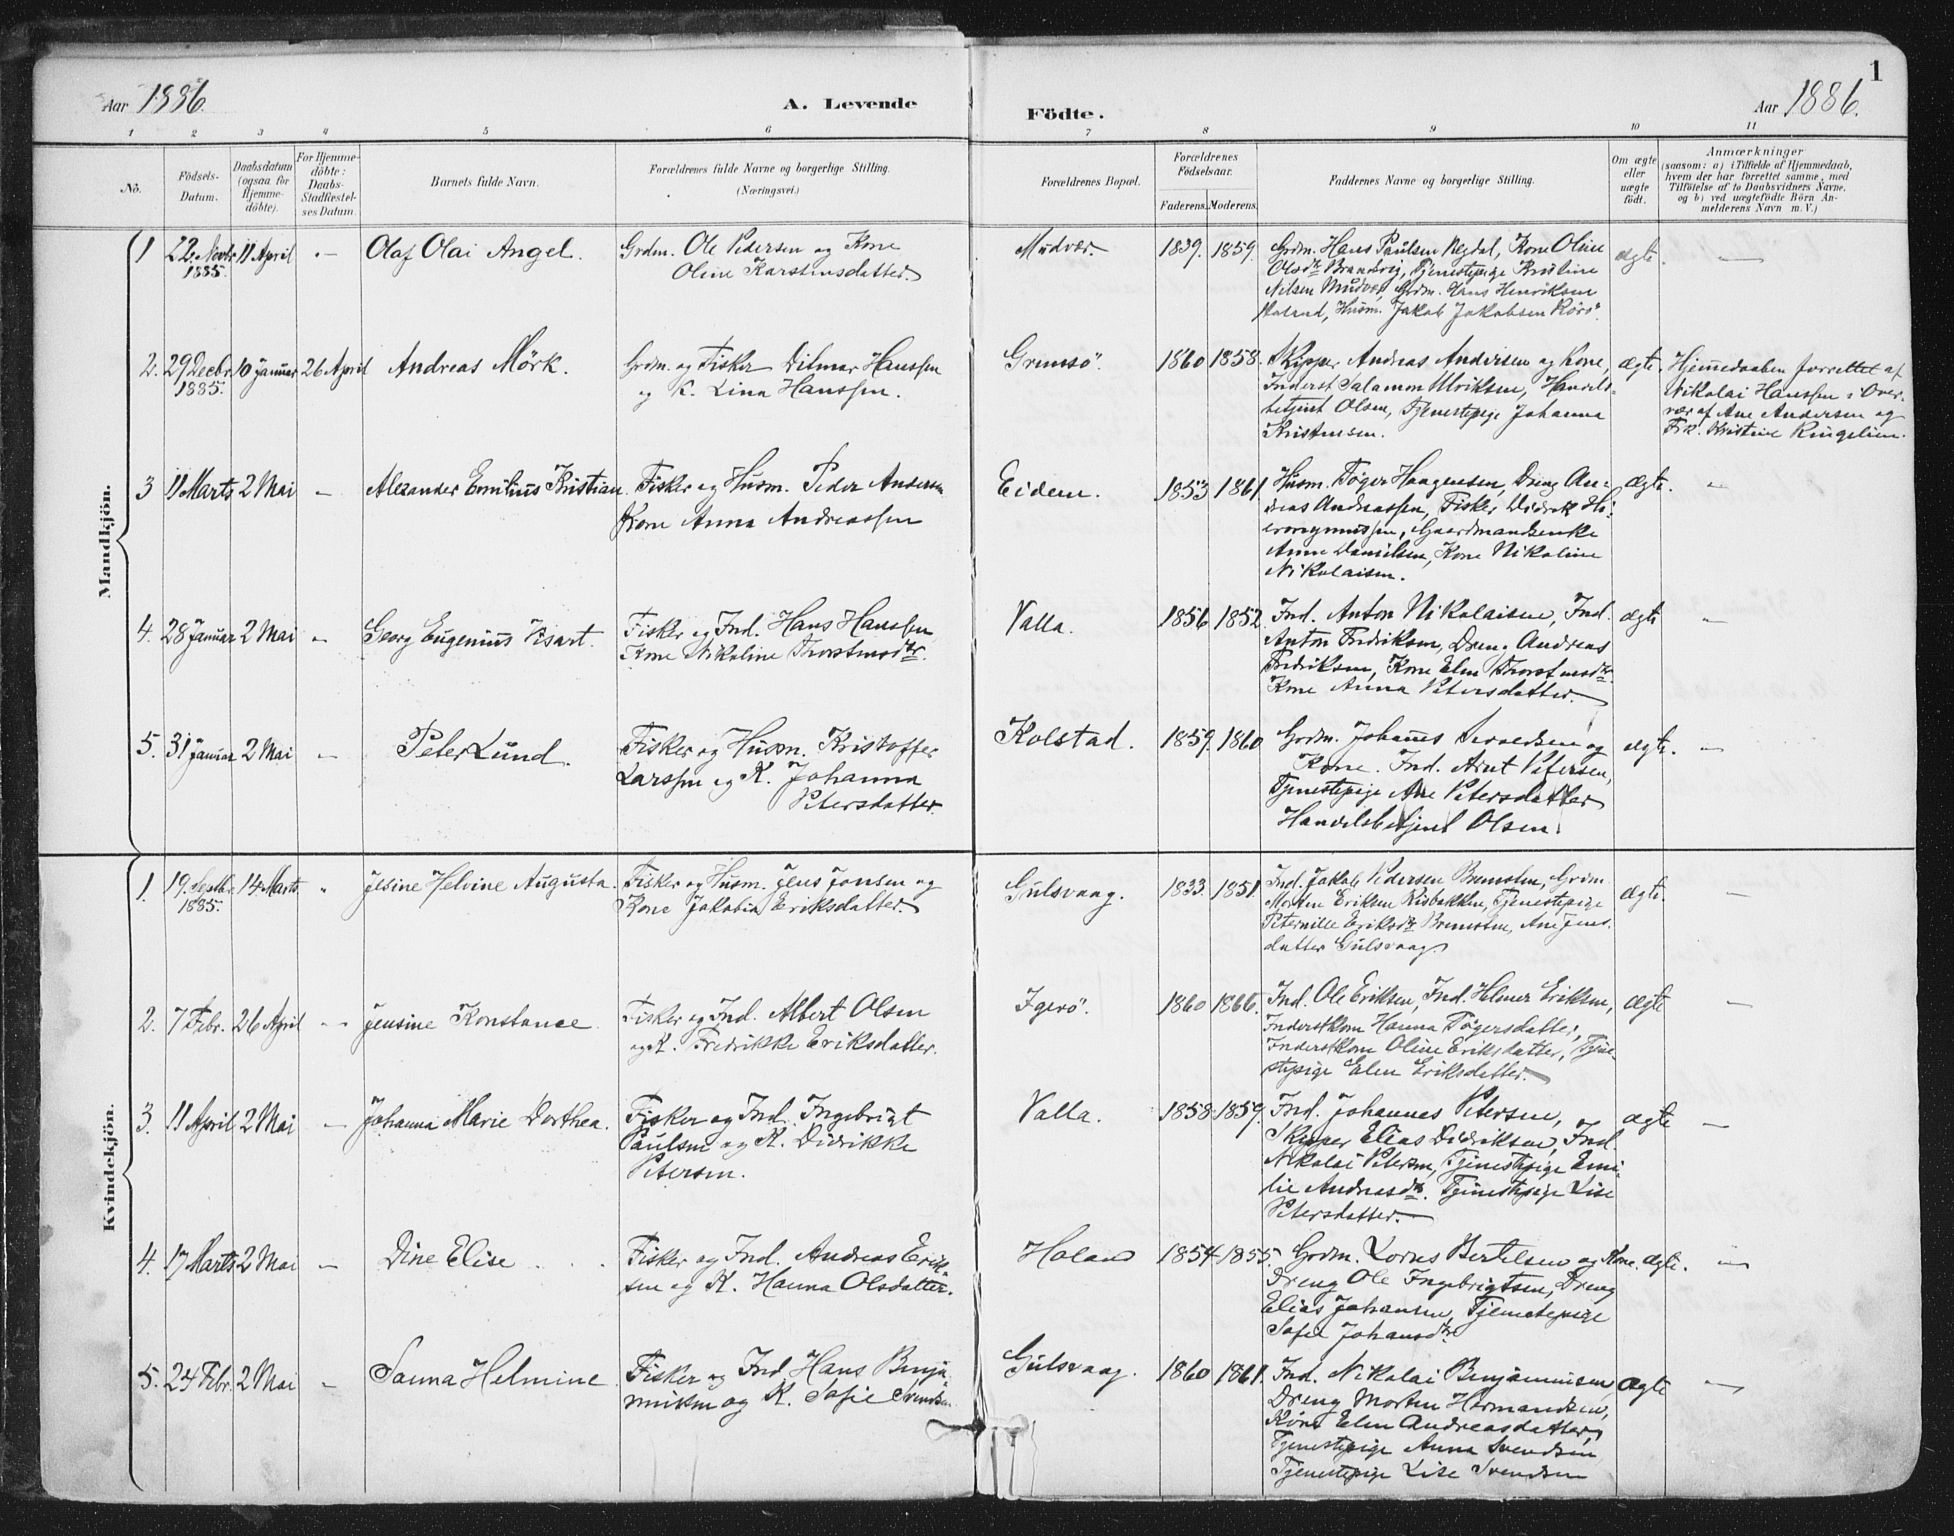 1
Aar 1886.
A. Levende
Födte.
Aar 1886.
1 2 3 4 5 6 7 8 9 10 11
No.
Födsels-
Datum.
Daabsdatum
(ogsaa for
Hjemme-
döbte).
For Hjemme-
döbte:
Daabs-
Stadfæstel-
ses Datum.
Barnets fulde Navn.
Forældrenes fulde Navne og borgerlige Stilling.
(Næringsvei.)
Forældrenes Bopæl.
Forældrenes
Födselsaar.
Faderens. Moderens.
Faddernes Navne og borgerlige Stilling.
Om ægte
eller
uægte
födt.
Anmærkninger
(saasom: a) i Tilfælde af Hjemmedaab,
hvem der har forrettet samme, med
Tilföielse af to Daabsvidners Navne,
og b) ved uægtefödte Börn An-
melderens Navn m. V.)
Mandkjön.
1 22. Novbr 1885. 11 April - Olaf Olai Angel.
Grdm. Ole Pedersen og Kone
Oline Karstensdatter
Mudvær. 1839. 1859.
Grdm. Hans Paulsen Regdal, Kone Oline
Olsdtr Brandvig, Tjenestepige Kristine
Nilsen Mudvær, Grdm. Hans Henriksen
Husm. Jakob Jakobsen Rörö.
ægte. -
2. 29 Decbr 1885. 10 Januar 26 April Andreas Mörk.
Grdm. og Fisker Ditmar Hanssen
og K. Lina Hanssen.
Gremsö. 1860 1858.
Skipper Andreas Andersen og Kone,
Inderst Salamon Ulriksen, Handels-
betjent Olsen, Tjenestepige Johanna
Kristensen.
ægte.
Hjemmedaaben forrettet af
Nikolai Hanssen i Over-
vær af Ane Andersen og
Frk. Kristine Ringelien.
3 11 Marts 2 Mai - Alexander Emilius Kristian.
Fisker og Husm. Peder Andersen
Kone Anna Andreassen
Eidem. 1853 1861.
Husm. Töger Haagensen, Dreng An-
dreas Andreassen, Fisker Didrik Hi-
eronymussen, Gaardmandsenke
Anne Danielsen, Kone Nikoline
Nikolaisen.
Ægte. -
4. 28 Januar 2 Mai - Georg Eugenius Visart.
Fisker og Ind. Hans Hanssen
Kone Nikoline Thorstensdtr.
Valla. 1856 1852.
Ind. Anton Nikolaisen, Ind.
Anton Fredriksen, Dreng Andreas
Fredriksen, Kone Elen Thorstensdtr.
Kone Anna Petersdatter.
ægte -
5. 31 Januar 2 Mai - Peter Lund.
Fisker og Husm. Kristoffer
Larssen og K. Johanna
Petersdatter.
Kolstad. 1859. 1860
Grdm. Johannes og
Kone. Ind. Arnt Petersen,
Tjenestepige Ane Petersdatter
Handelsbetjent Olsen.
ægte. -
Kvindekjön.
1. 19. Septbr. 1885. 14 Marts. " Jesine Helvine Augusta.
Fisker og Husm. Jens Jonsen og
Kone Jakobia Eriksdatter.
Gulsvaag. 1833. 1851.
Ind. Jakob Pedersen Bremsten, Grdm
Morten Eriksen Risbakken, Tjenestepige
Peternille Eriksdtr Bremsten, Ane Jens-
datter Gulsvaag
Ægte. -
2. 7 Febr. 26 April - Jensine Konstance
Fisker og Ind. Albert Olsen
og K. Fredrikke Eriksdatter.
Igerö. 1860 1866.
Ind. Ole Eriksen, Ind. Helmer Eriksen,
Inderstkone Hanna Tögersdatter,
Inderstkone Oline Eriksdatter, Tjene-
stepige Elen Eriksdatter.
Ægte -
3. 11 April 2 Mai - Johanna Marie Dorthea.
Fisker og Ind. Ingebrigt
Paulsen og K. Didrikke
Petersen.
Valla. 1858. 1859.
Ind. Johannes Petersen,
Skipper Elias Didriksen, Ind.
Nikolai Petersen, Tjenestepige Emi-
lie Andreasdtr. Tjenestepige Lise
Petersdatter.
ægte -
4. 17 Marts 2 Mai - Dine Elise
Fisker og Ind. Andreas Erik-
sen og K. Hanna Olsdatter.
Holand 1854 1855.
Grdm. Lornts Bertelsen og Kone.
Dreng Ole Ingebrigtsen, Dreng
Elias Johansen, Tjenestepige
Sofie Johansdtr
Ægte. -
5. 24 Febr. 2 Mai - Sanna Helmine
Fisker og Ind Hans Benja-
minsen og K. Sofie Svendsen.
Gulsvaag. 1860 1861.
Ind. Nikolai Benjaminsen
Dreng Morten Hermandsen,
Kone Elen Andreasdatter,
Tjenestepige Anna Svendsen
Tjenestepige Lise Svendsen
Ægte -